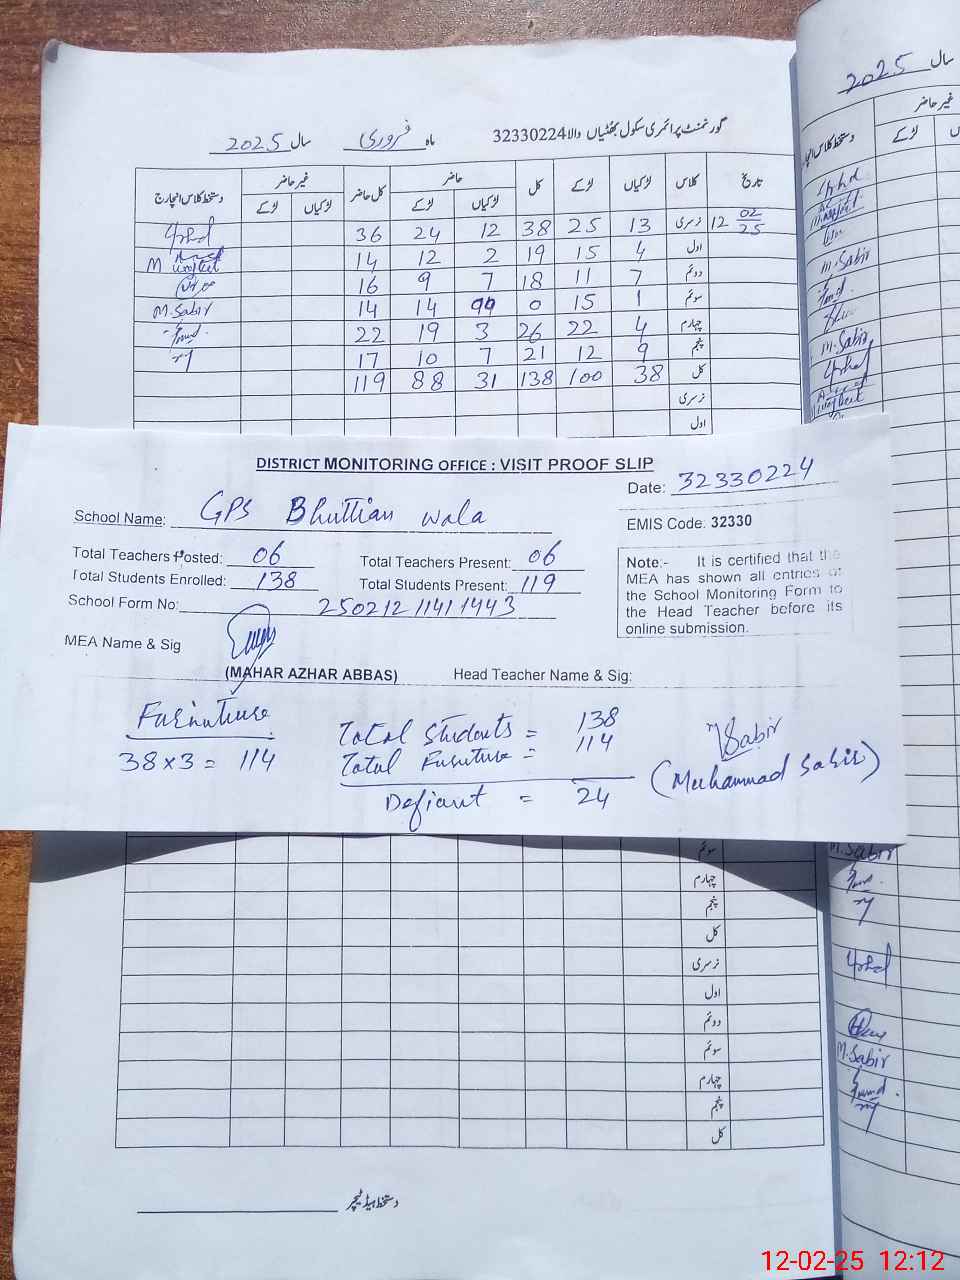 گورنمنٹ پرائمری سکول بھٹیاں والا 32330224 ماہ فروری سال 2025
تاریخ کلاس لڑکیاں لڑکے کل حاضر کل حاضر غیر حاضر دستخط کلاس انچارج
لڑکیاں لڑکے لڑکیاں لڑکے
12 02/25 نرسری 13 25 38 12 24 36
اول 4 15 19 2 12 14
دوئم 7 11 18 7 9 16
سوئم 1 15 0 14 14 M.Sabir
چہارم 4 22 26 3 19 22
پنجم 9 12 21 7 10 17
کل 38 100 138 31 88 119
نرسری
اول
DISTRICT MONITORING OFFICE : VISIT PROOF SLIP
Date: 32330224
School Name: GPS Bhuttian wala
EMIS Code: 32330
Total Teachers Posted: 06 Total Teachers Present: 06
Total Students Enrolled: 138 Total Students Present: 119
School Form No: 250212 1141 1443
Note:- It is certified that the
MEA has shown all entries of
the School Monitoring Form to
the Head Teacher before its
online submission.
MEA Name & Sig
(MAHAR AZHAR ABBAS) Head Teacher Name & Sig:
Furniture
38×3 = 114
Total Students = 138
Total Furniture = 114
Defiant = 24
Sabir
(Muhammad Sabir)
سوئم
چہارم
پنجم
کل
نرسری
اول
دوئم
سوئم
چہارم
پنجم
کل
دستخط ہیڈ ٹیچر
سال 2025
غیر حاضر
لڑکے
دستخط کلاس انچارج
M.Sabir
M.Sabir
M.Sabir
M.Sabir
12-02-25 12:12